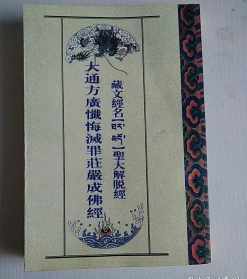 藏文經名【】聖大解脱經
大通方廣懺悔滅罪莊嚴成佛經